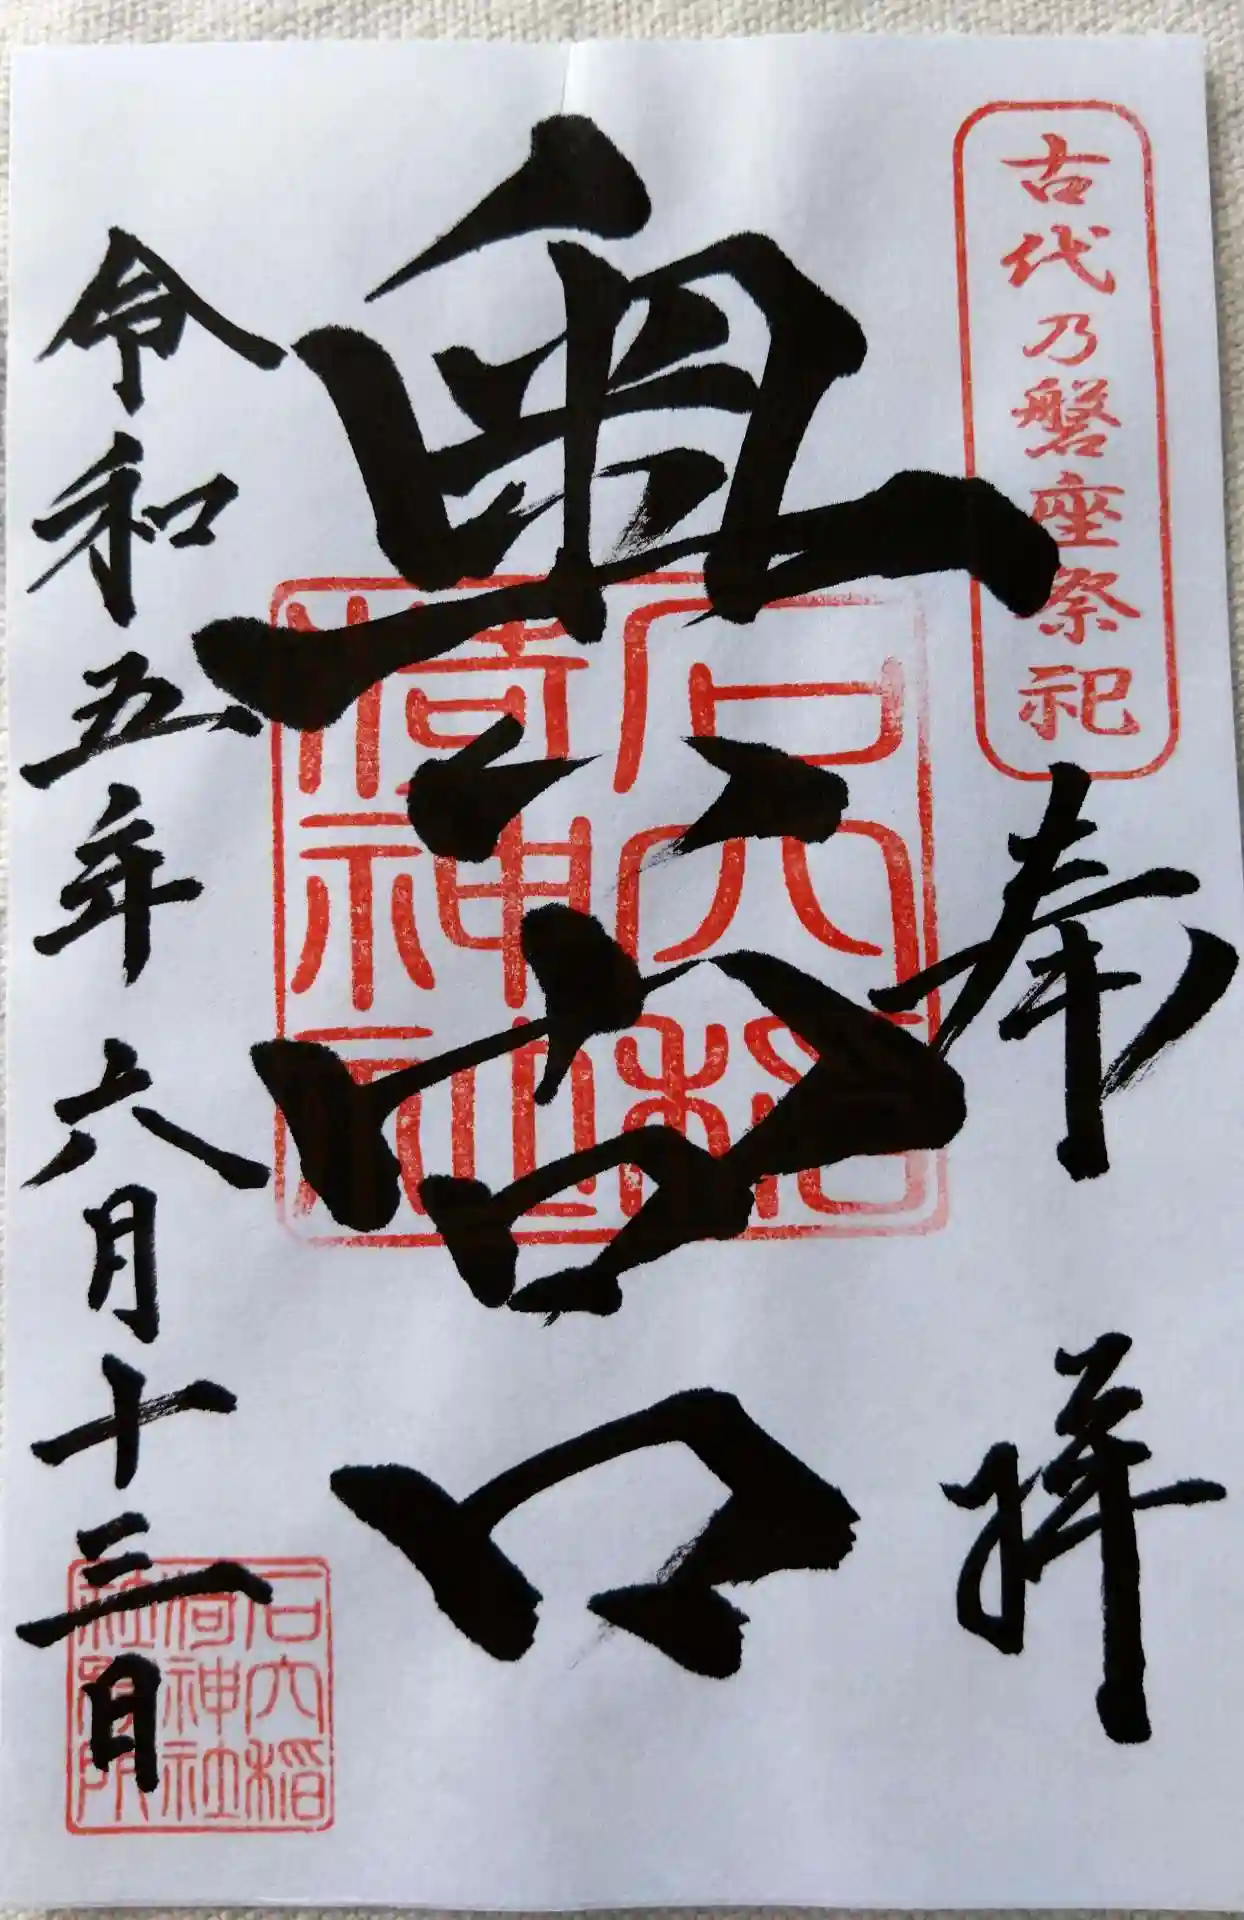 古代乃磐座祭祀
奉拝
奥宮
石穴稲
荷神社
令和五年六月十三日
石穴稲
荷神社
社務所